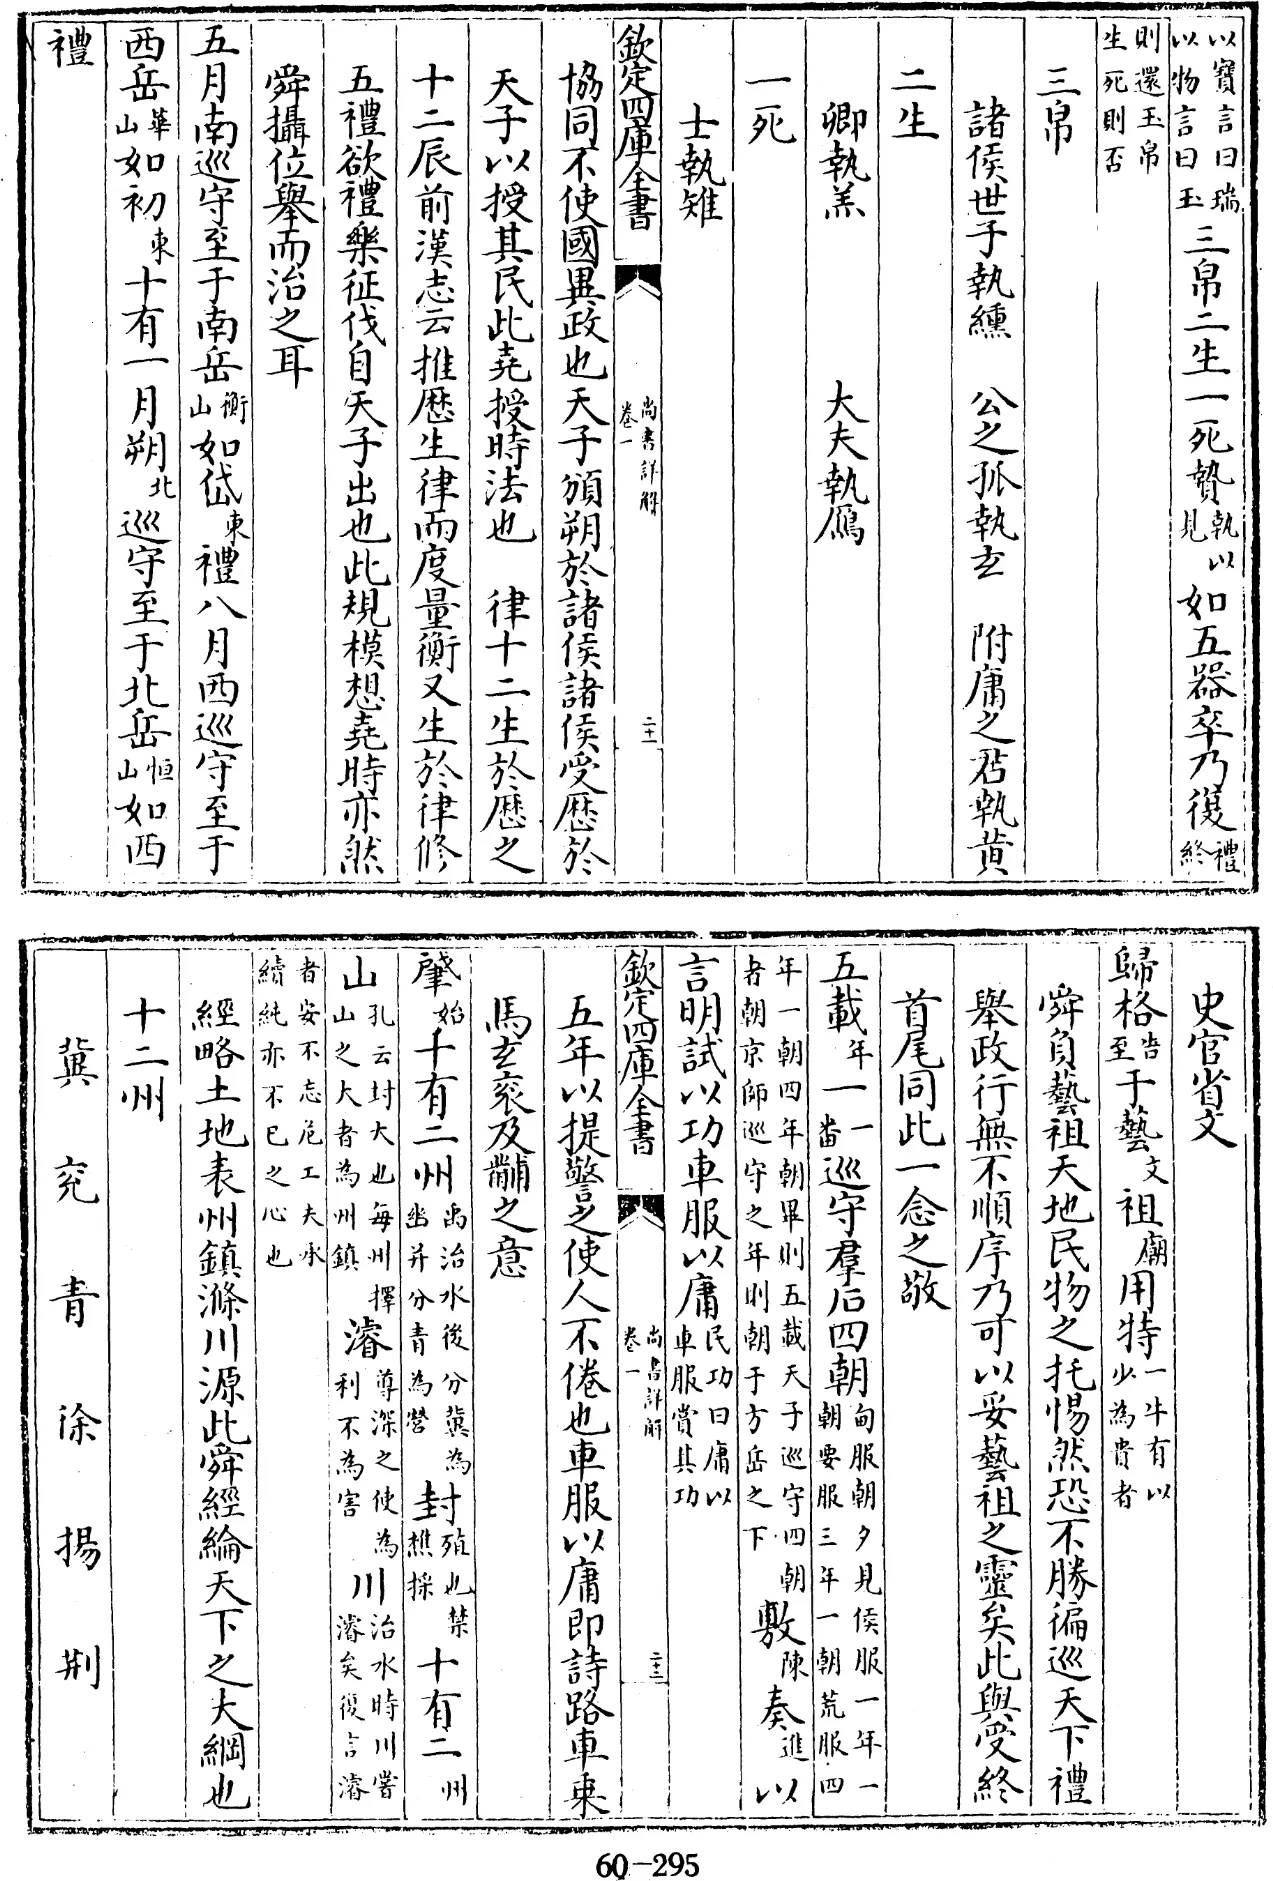 以寳言曰瑞以物言曰玉三帛二生一死贄執以見如五器卒乃復禮終
則還玉帛生死則否
三帛
諸侯世子執纁　公之孤執玄　附庸之君執黄
二生
卿執羔　大夫執鴈
一死
士執雉
欽定四庫全書　尚書詳解卷一　二十一
協同不使國異政也天子頒朔於諸侯諸侯受歴於
天子以授其民此堯授時法也　律十二生於歴之
十二辰前漢志云推歴生律而度量衡又生於律修
五禮欲禮樂征伐自天子出也此規模想堯時亦然
舜攝位舉而治之耳
五月南巡守至于南岳衡山如岱東禮八月西巡守至于
西岳華山如初東十有一月朔北巡守至于北岳恒山如西
禮
史官省文
歸格告至于藝文祖廟用特一牛有以少為貴者
舜負藝祖天地民物之托惕然恐不勝徧巡天下禮
舉政行無不順序乃可以妥藝祖之靈矣此與受終
首尾同此一念之敬
五載年一一畨巡守羣后四朝甸服朝夕見侯服一年一朝要服三年一朝荒服四
年一朝四年朝畢則五載天子巡守四朝者朝京師巡守之年則朝于方岳之下敷陳奏進以
言明試以功車服以庸民功曰庸以車服賞其功
欽定四庫全書　尚書詳解卷一　二十二
五年以提警之使人不倦也車服以庸即詩路車乘
馬玄衮及黼之意
肇始十有二州禹治水後分冀為幽并分青為營封殖也禁樵採十有二州
山孔云封大也每州擇山之大者為州鎮濬導深之使為利不為害川治水時川嘗濬矣復言濬
者安不忘危工夫承續純亦不已之心也
經略土地表州鎮滌川源此舜經綸天下之大綱也
十二州
冀　兖　青　徐　揚　荆
60-295